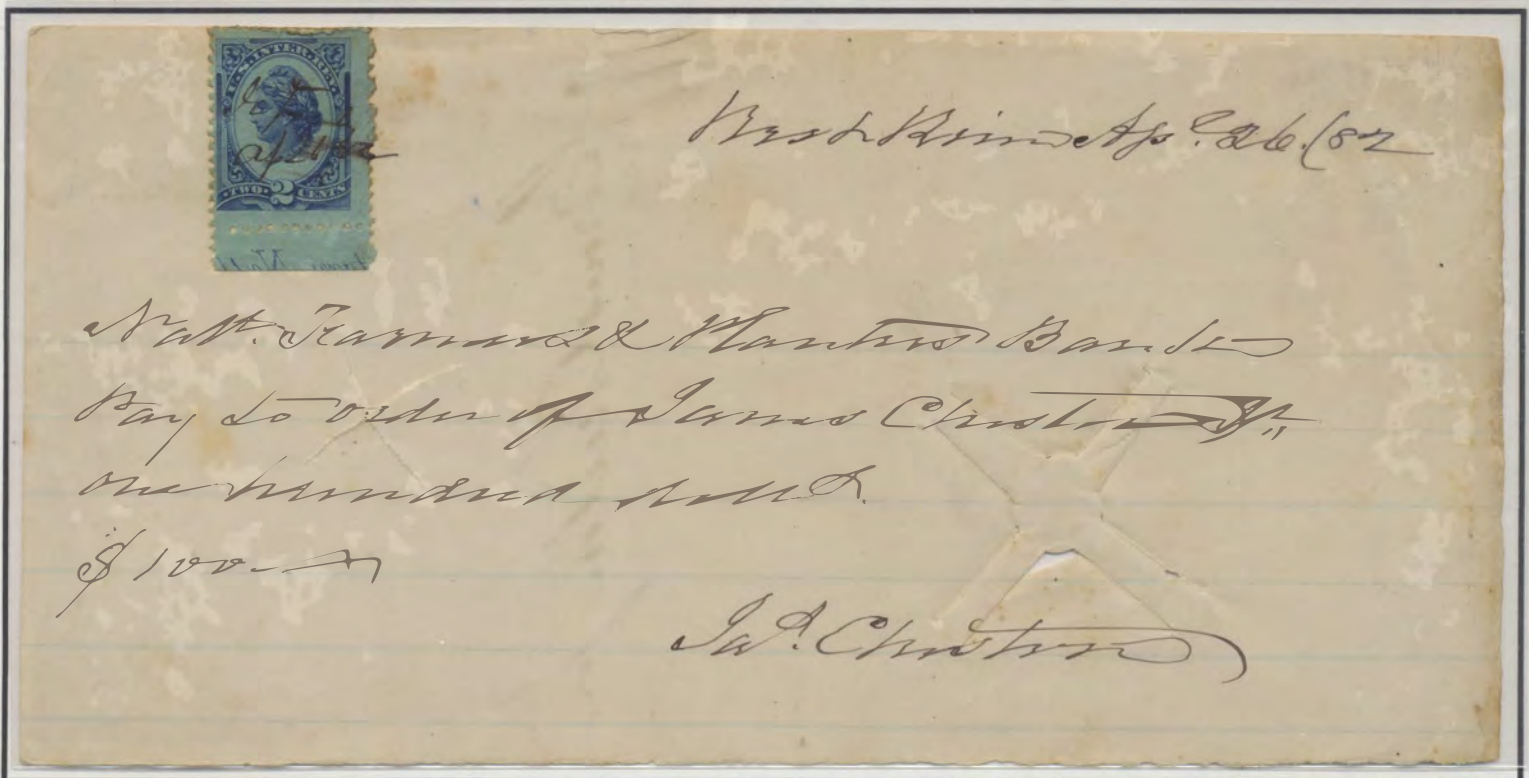 U.S. INTER. REV.
TWO 2 CENTS
West River Apl. 26. /82
Natl. Farmers & Planters Bank
Pay to order of James Cheston Jr.
one hundred dolls.
$ 100.
Jas. Cheston